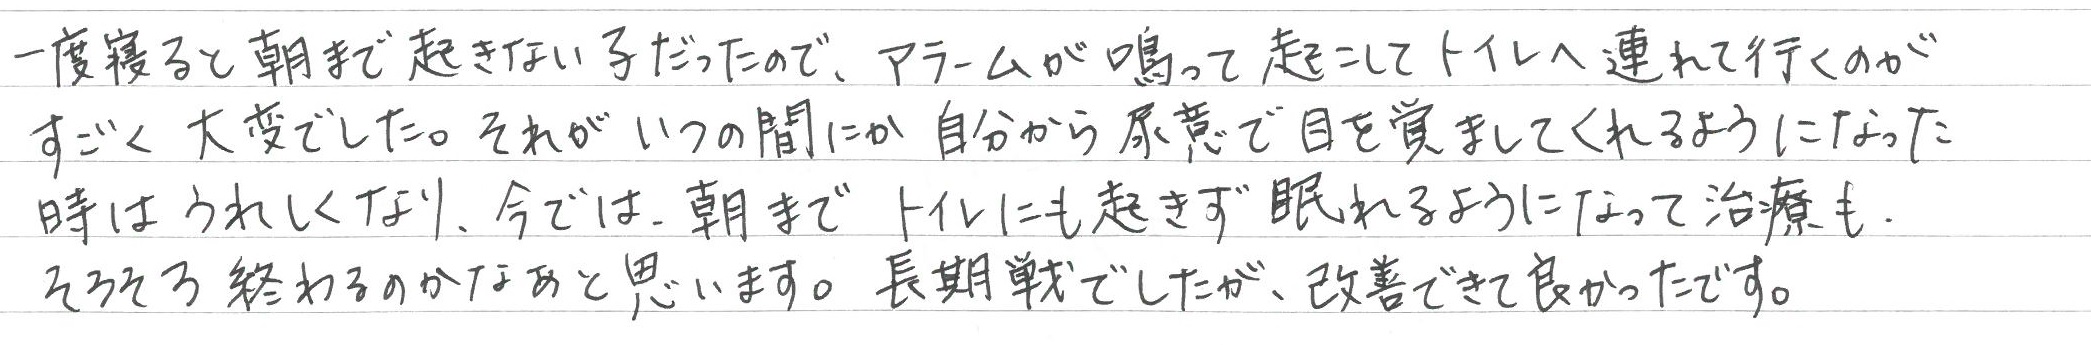 一度寝ると朝まで起きない子だったので、アラームが鳴って起こしてトイレへ連れて行くのが
すごく大変でした。それがいつの間にか自分から尿意で目を覚ましてくれるようになった
時はうれしくなり、今では、朝までトイレにも起きず眠れるようになって治療も、
そろそろ終わるのかなあと思います。長期戦でしたが、改善できて良かったです。